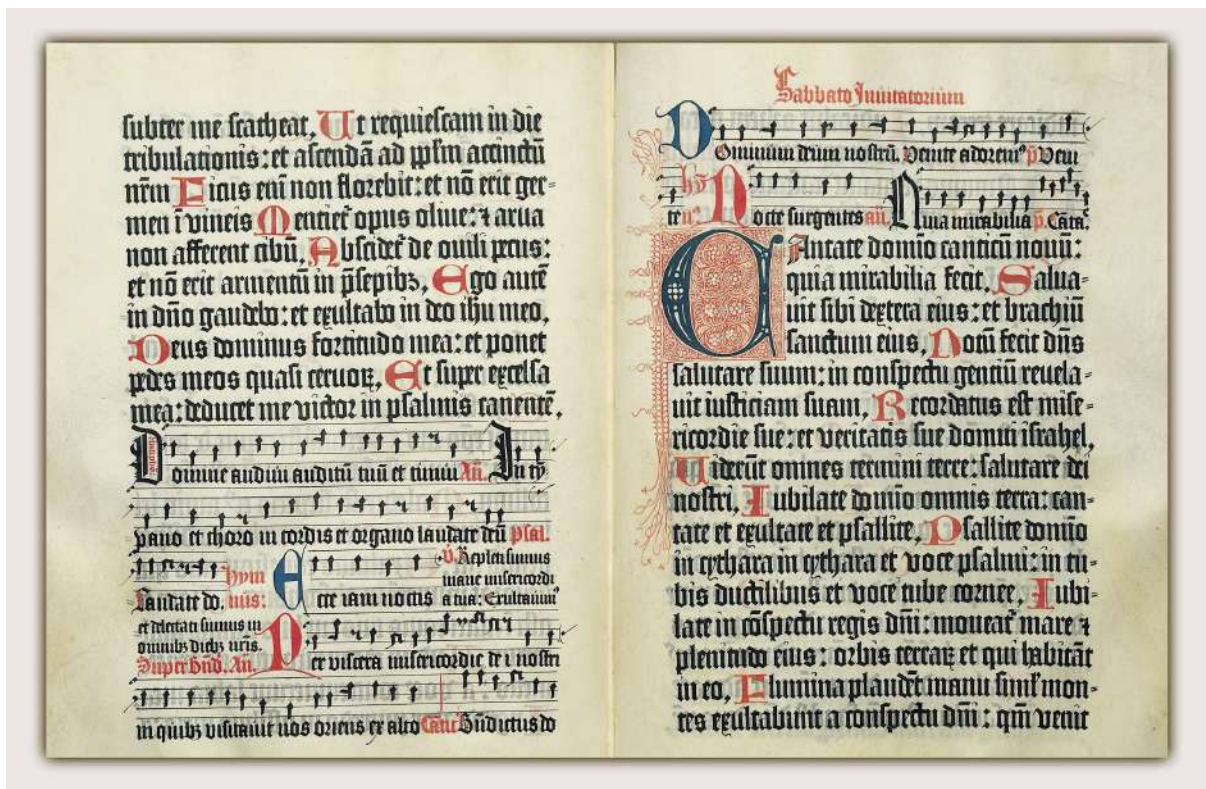 subter me scatheat, Ut requiescam in die
tribulationis: et ascendã ad pplm accinctũ
nr̃m Ficus eni non florebit: et nõ erit ger⸗
men ĩ vineis Mentiet opus oliue: ⁊ arua
non afferent cibũ, Abscidet de ouili pecus:
et nõ erit armentũ in p̃sepibꝫ, Ego autẽ
in dño gaudebo: et exultabo in deo ihũ meo,
Deus dominus fortitudo mea: et ponet
pedes meos quasi ceruoꝝ, Et super excelsa
mea: deducet me victor in psalmis canentẽ,
Domine audiui auditũ tuũ et timui Añ. In tỹ
pano et choro in cordis et organo laudate deũ Psal.
Laudate do. hym nus: Ecce iam noctis
V̉. Repleti sumus
mane misericordi
a tua: Exultauim⁹
et delectati sumus in
omnibꝫ diebꝫ nr̃is.
Super Bñd. Añ. Per viscera misericordie dei nostri
in quibꝫ visitauit nos oriens ex alto Cant̃ Bñdictus do
Sabbato Inuitatorium
Dominum deum nostrũ. Venite adorem⁹ p̃ Veni
te hỹ n⁹. Nocte surgentes añ. Quia mirabilia p̃. Cãta.
CAntate domĩo canticũ nouũ:
quia mirabilia fecit, Salua⸗
uit sibi dextera eius: et brachiũ
sanctum eius, Notũ fecit dñs
salutare suum: in conspectu gentiũ reuela⸗
uit iusticiam suam, Recordatus est mise⸗
ricordie sue: et veritatis sue domui israhel,
Viderũt omnes termini terre: salutare dei
nostri, Iubilate domĩo omnis terra: can⸗
tate et exultate et psallite, Psallite domĩo
in cythara in cythara et voce psalmi: in tu⸗
bis ductilibus et voce tube cornee, Iubi⸗
late in cõspectu regis dñi: moueat̉ mare ⁊
plenitudo eius: orbis terraꝝ et qui habitãt
in eo, Flumina plaudẽt manu siml̉ mon⸗
tes exultabunt a conspectu dñi: qm̃ venit